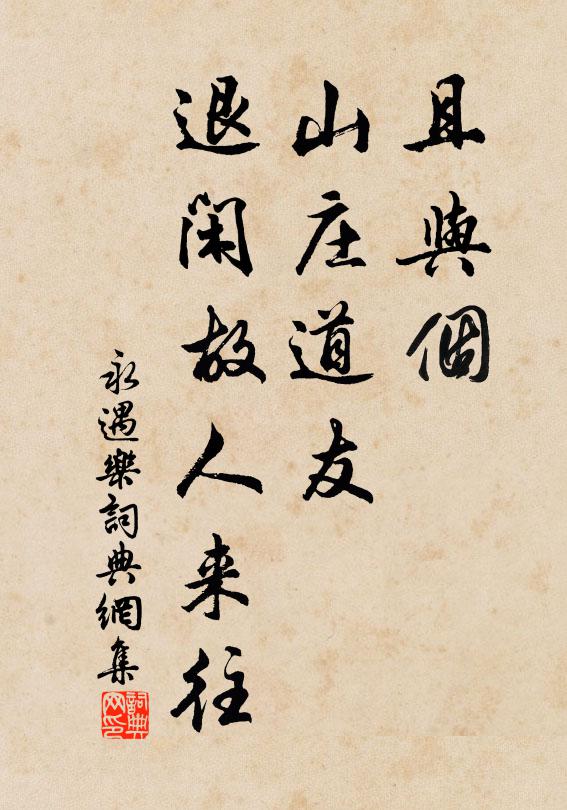 且與個
山庄道友
退閑故人来往
永遇樂詞典網集
詞典网印